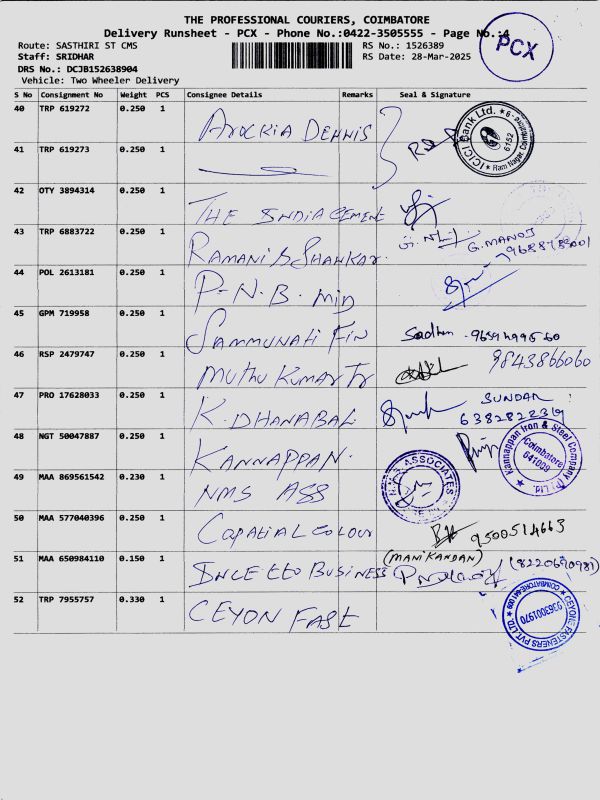 THE PROFESSIONAL COURIERS, COIMBATORE
Delivery Runsheet - PCX - Phone No.:0422-3505555 - Page No.:4
PCX
Route: SASTHIRI ST CMS
RS No.: 1526389
Staff: SRIDHAR
RS Date: 28-Mar-2025
DRS No.: DCJB152638904
Vehicle: Two Wheeler Delivery
S No Consignment No Weight PCS Consignee Details Remarks Seal & Signature
40 TRP 619272 0.250 1 Arockia Dennis
ICICI Bank Ltd. Ram Nagar 6152
41 TRP 619273 0.250 1
42 OTY 3894314 0.250 1 THE INDIA CEMENE
43 TRP 6883722 0.250 1 RAMANI & SHANKAR. G. MANOJ
44 POL 2613181 0.250 1 P.N.B. MID
45 GPM 719958 0.250 1 SAMMUNATI FIN
46 RSP 2479747 0.250 1 MUTHU KUMAR TR 9843866060
47 PRO 17628033 0.250 1 K. DHANABAL SUNDAR
48 NGT 50047887 0.250 1 KANNAPPAN.
Kannappan Iron & Steel Company (P) Ltd. Coimbatore 641009
49 MAA 869561542 0.230 1 NMS ASS
N.M.S. ASSOCIATES
50 MAA 577040396 0.250 1 CAPATIAL COLOUR 9500514663
51 MAA 650984110 0.150 1 BUSINESS (MANIKANDAN) (8220690981)
52 TRP 7955757 0.330 1 CEYON FASE
CEYONE FASTENERS PVT. LTD. COIMBATORE-641 009 9363001970